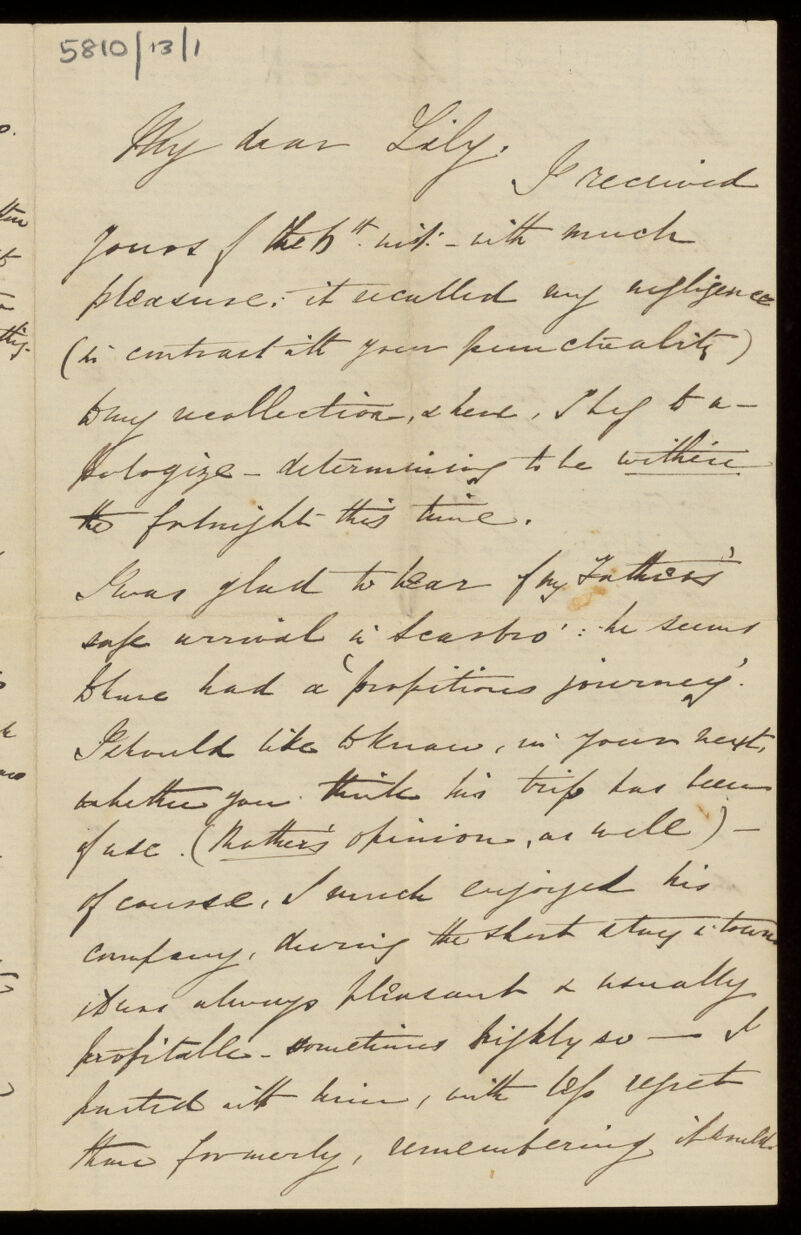 5810/13/1
My dear Lily.
I received
yours of the 6th. inst. - with much
pleasure: it recalled my negligence
(in contrast with your punctuality)
to my recollection, & here, I beg to a-
pologize - determining to be within
the fortnight this time.
I was glad to hear of my Father's
safe arrival in Scarbro': he seems
to have had a 'propitious journey'.
I should like to know, in your next,
whether you think his trip has been
of use. (Mother's opinion, as well) -
of course, I much enjoyed his
company, during the short stay in town
it was always pleasant & usually
profitable - sometimes highly so — I
parted with him, with less regret
than formerly, remembering it would